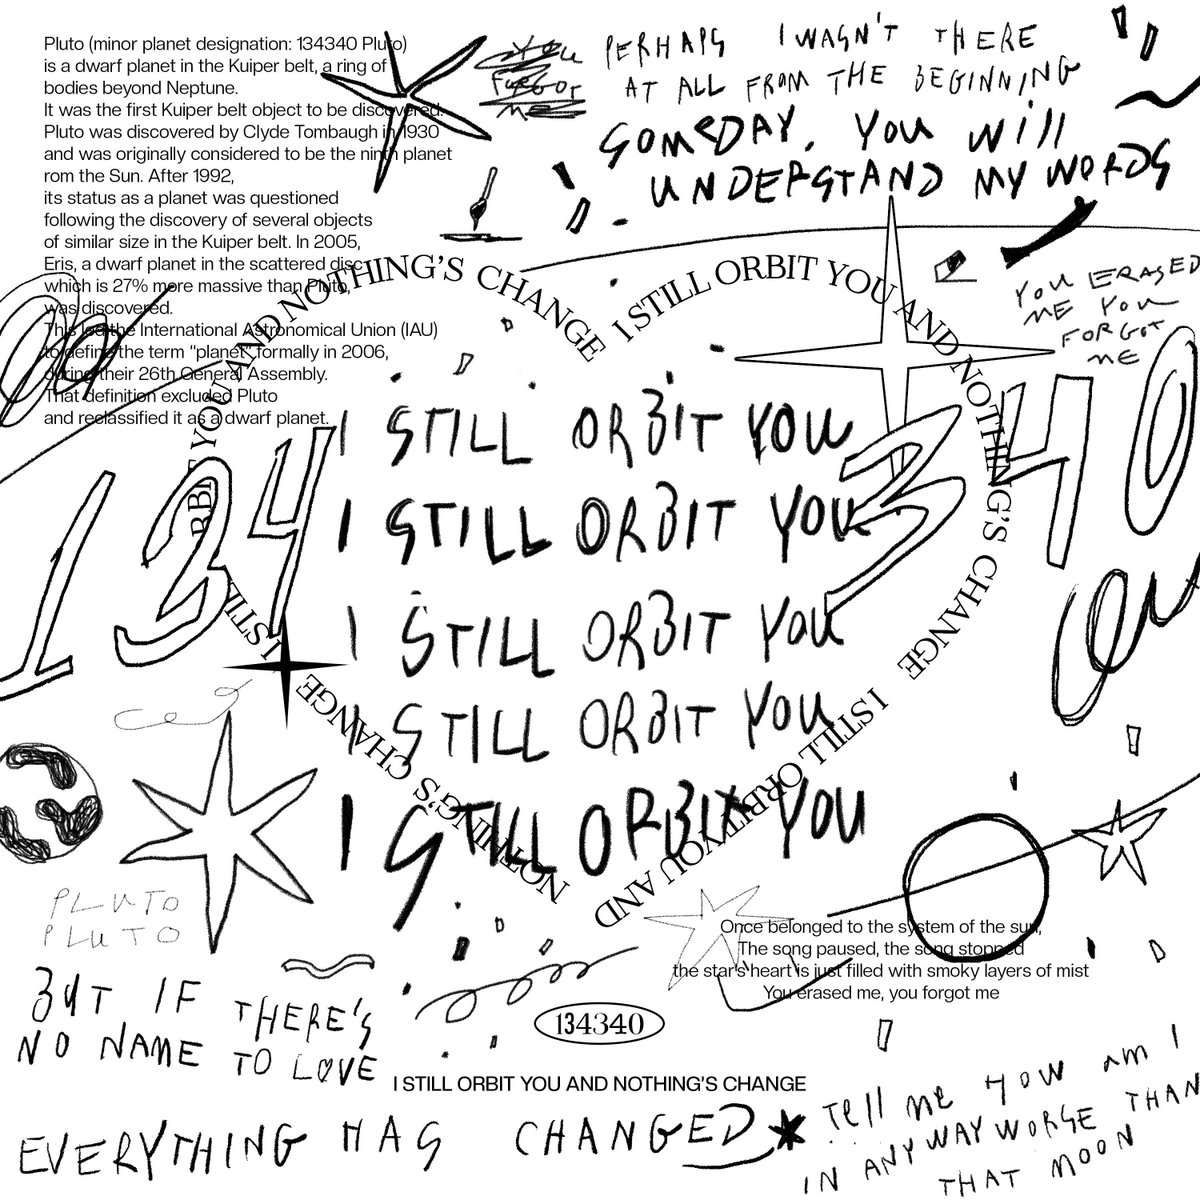 Pluto (minor planet designation: 134340 Pluto)
is a dwarf planet in the Kuiper belt, a ring of
bodies beyond Neptune.
It was the first Kuiper belt object to be discovered.
Pluto was discovered by Clyde Tombaugh in 1930
and was originally considered to be the ninth planet
rom the Sun. After 1992,
its status as a planet was questioned
following the discovery of several objects
of similar size in the Kuiper belt. In 2005,
Eris, a dwarf planet in the scattered disc
which is 27% more massive than Pluto,
was discovered.
This led the International Astronomical Union (IAU)
to define the term "planet" formally in 2006,
during their 26th General Assembly.
That definition excluded Pluto
and reclassified it as a dwarf planet.
YOU
FORGOT
ME
PERHAPS I WASN'T THERE
AT ALL FROM THE BEGINNING
SOMEDAY, YOU Will
UNDERSTAND MY WORDS
YOU ERASED
ME YOU
FORGOT
ME
I STILL ORBIT YOU AND NOTHING'S CHANGE
I STILL ORBIT YOU AND NOTHING'S CHANGE
I STILL ORBIT YOU AND NOTHING'S CHANGE
134
340
I STILL ORBIT YOU
I STILL ORBIT YOU
I STILL ORBIT YOU
I STILL ORBIT YOU
I STILL ORBIT YOU
PLUTO
PLUTO
BUT IF THERE'S
NO NAME TO LOVE
Once belonged to the system of the sun,
The song paused, the song stopped
the star's heart is just filled with smoky layers of mist
You erased me, you forgot me
134340
I STILL ORBIT YOU AND NOTHING'S CHANGE
EVERYTHING HAS CHANGED
Tell me HOW am I
IN ANY WAY WORSE THAN
THAT MOON